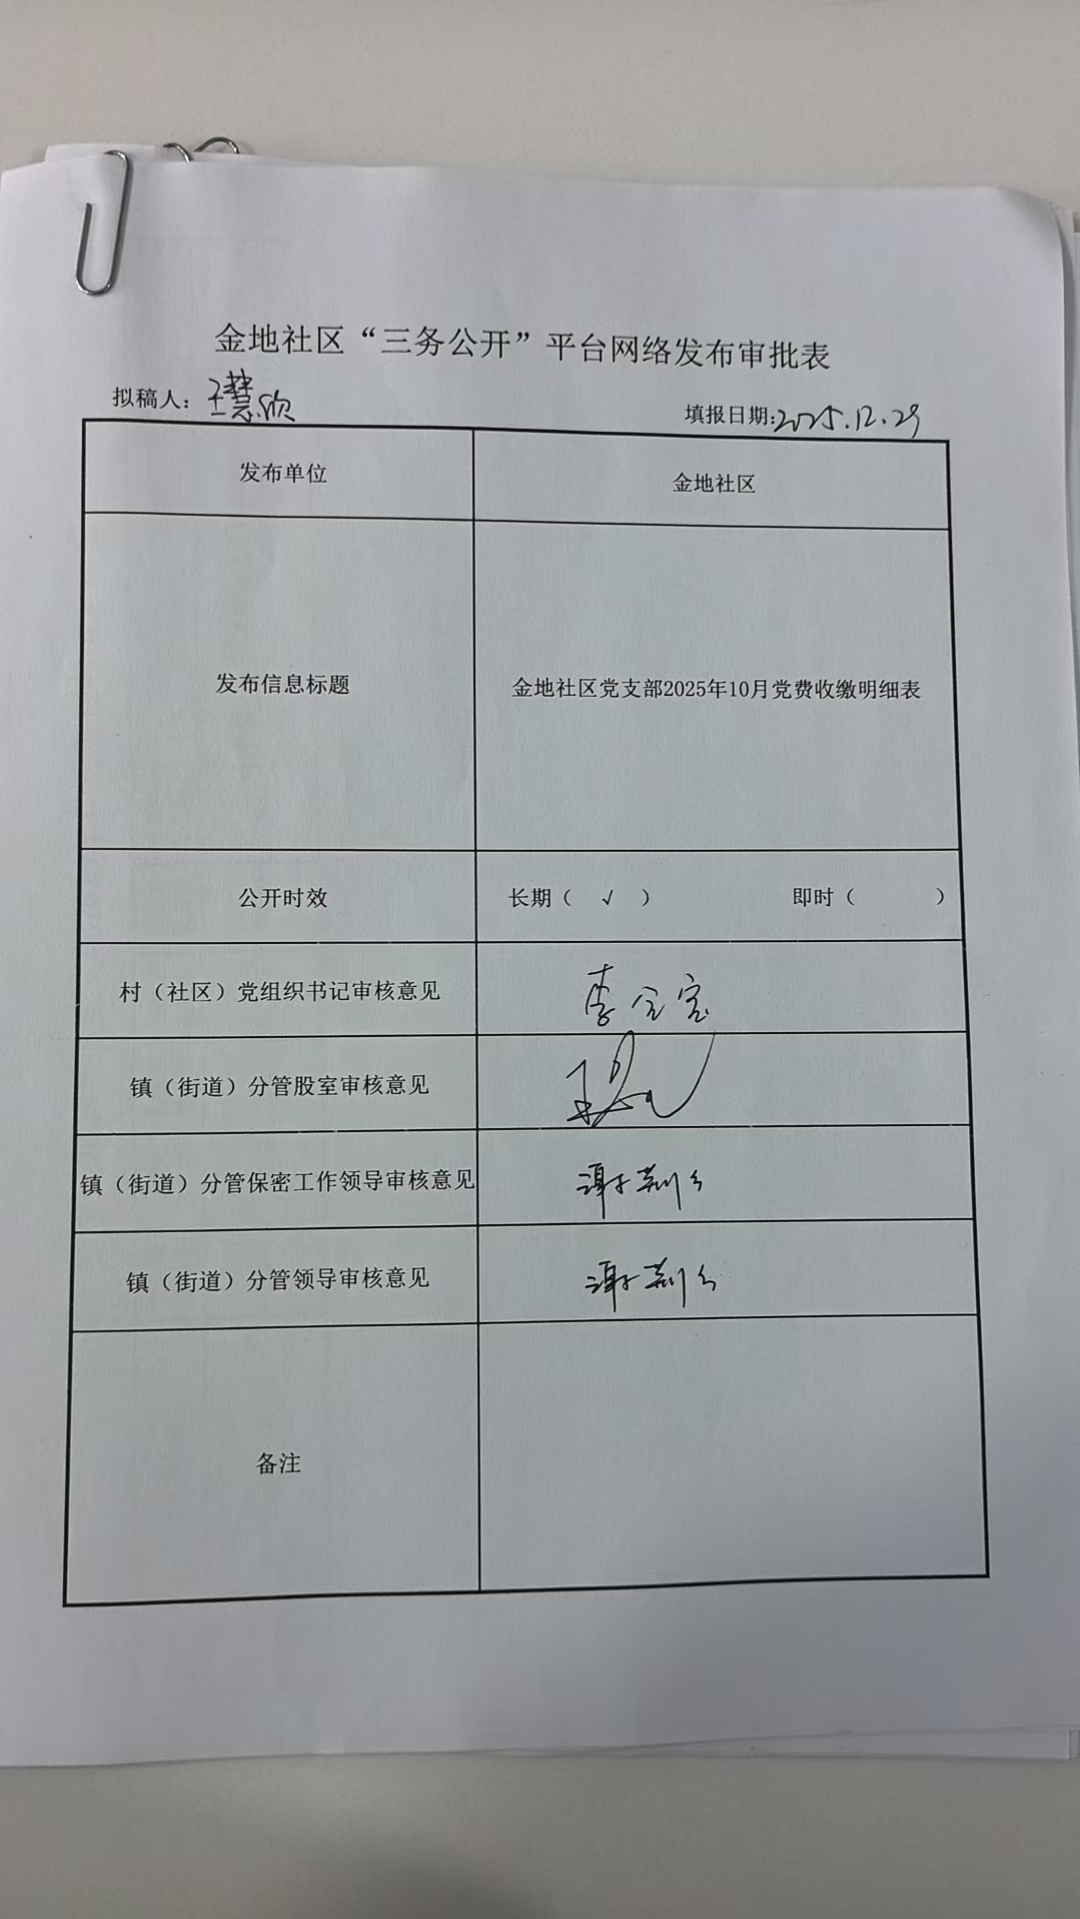 金地社区“三务公开”平台网络发布审批表
拟稿人：王慧欣
填报日期：2025.12.29
发布单位 金地社区
发布信息标题 金地社区党支部2025年10月党费收缴明细表
公开时效 长期（ √ ） 即时（ ）
村（社区）党组织书记审核意见 李
镇（街道）分管股室审核意见
镇（街道）分管保密工作领导审核意见
镇（街道）分管领导审核意见
备注